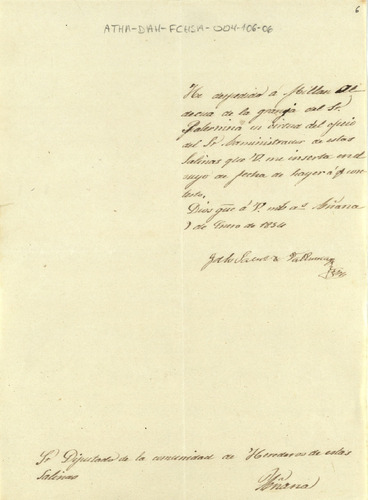 6
ATHA-DAH-FCHSA-004-106-06
He despedido á Millan
de la granja del Sr.
Palermina en virtud del oficio
del Sr. Administrador de estas
Salinas que V. me inserta en el
suyo de fecha de hayer á q. con
testo.
Dios gue. á V. ms. as. Añana
9 de Enero de 1834
Sr. Diputado de la comunidad de Herederos de estas
Salinas
Añana